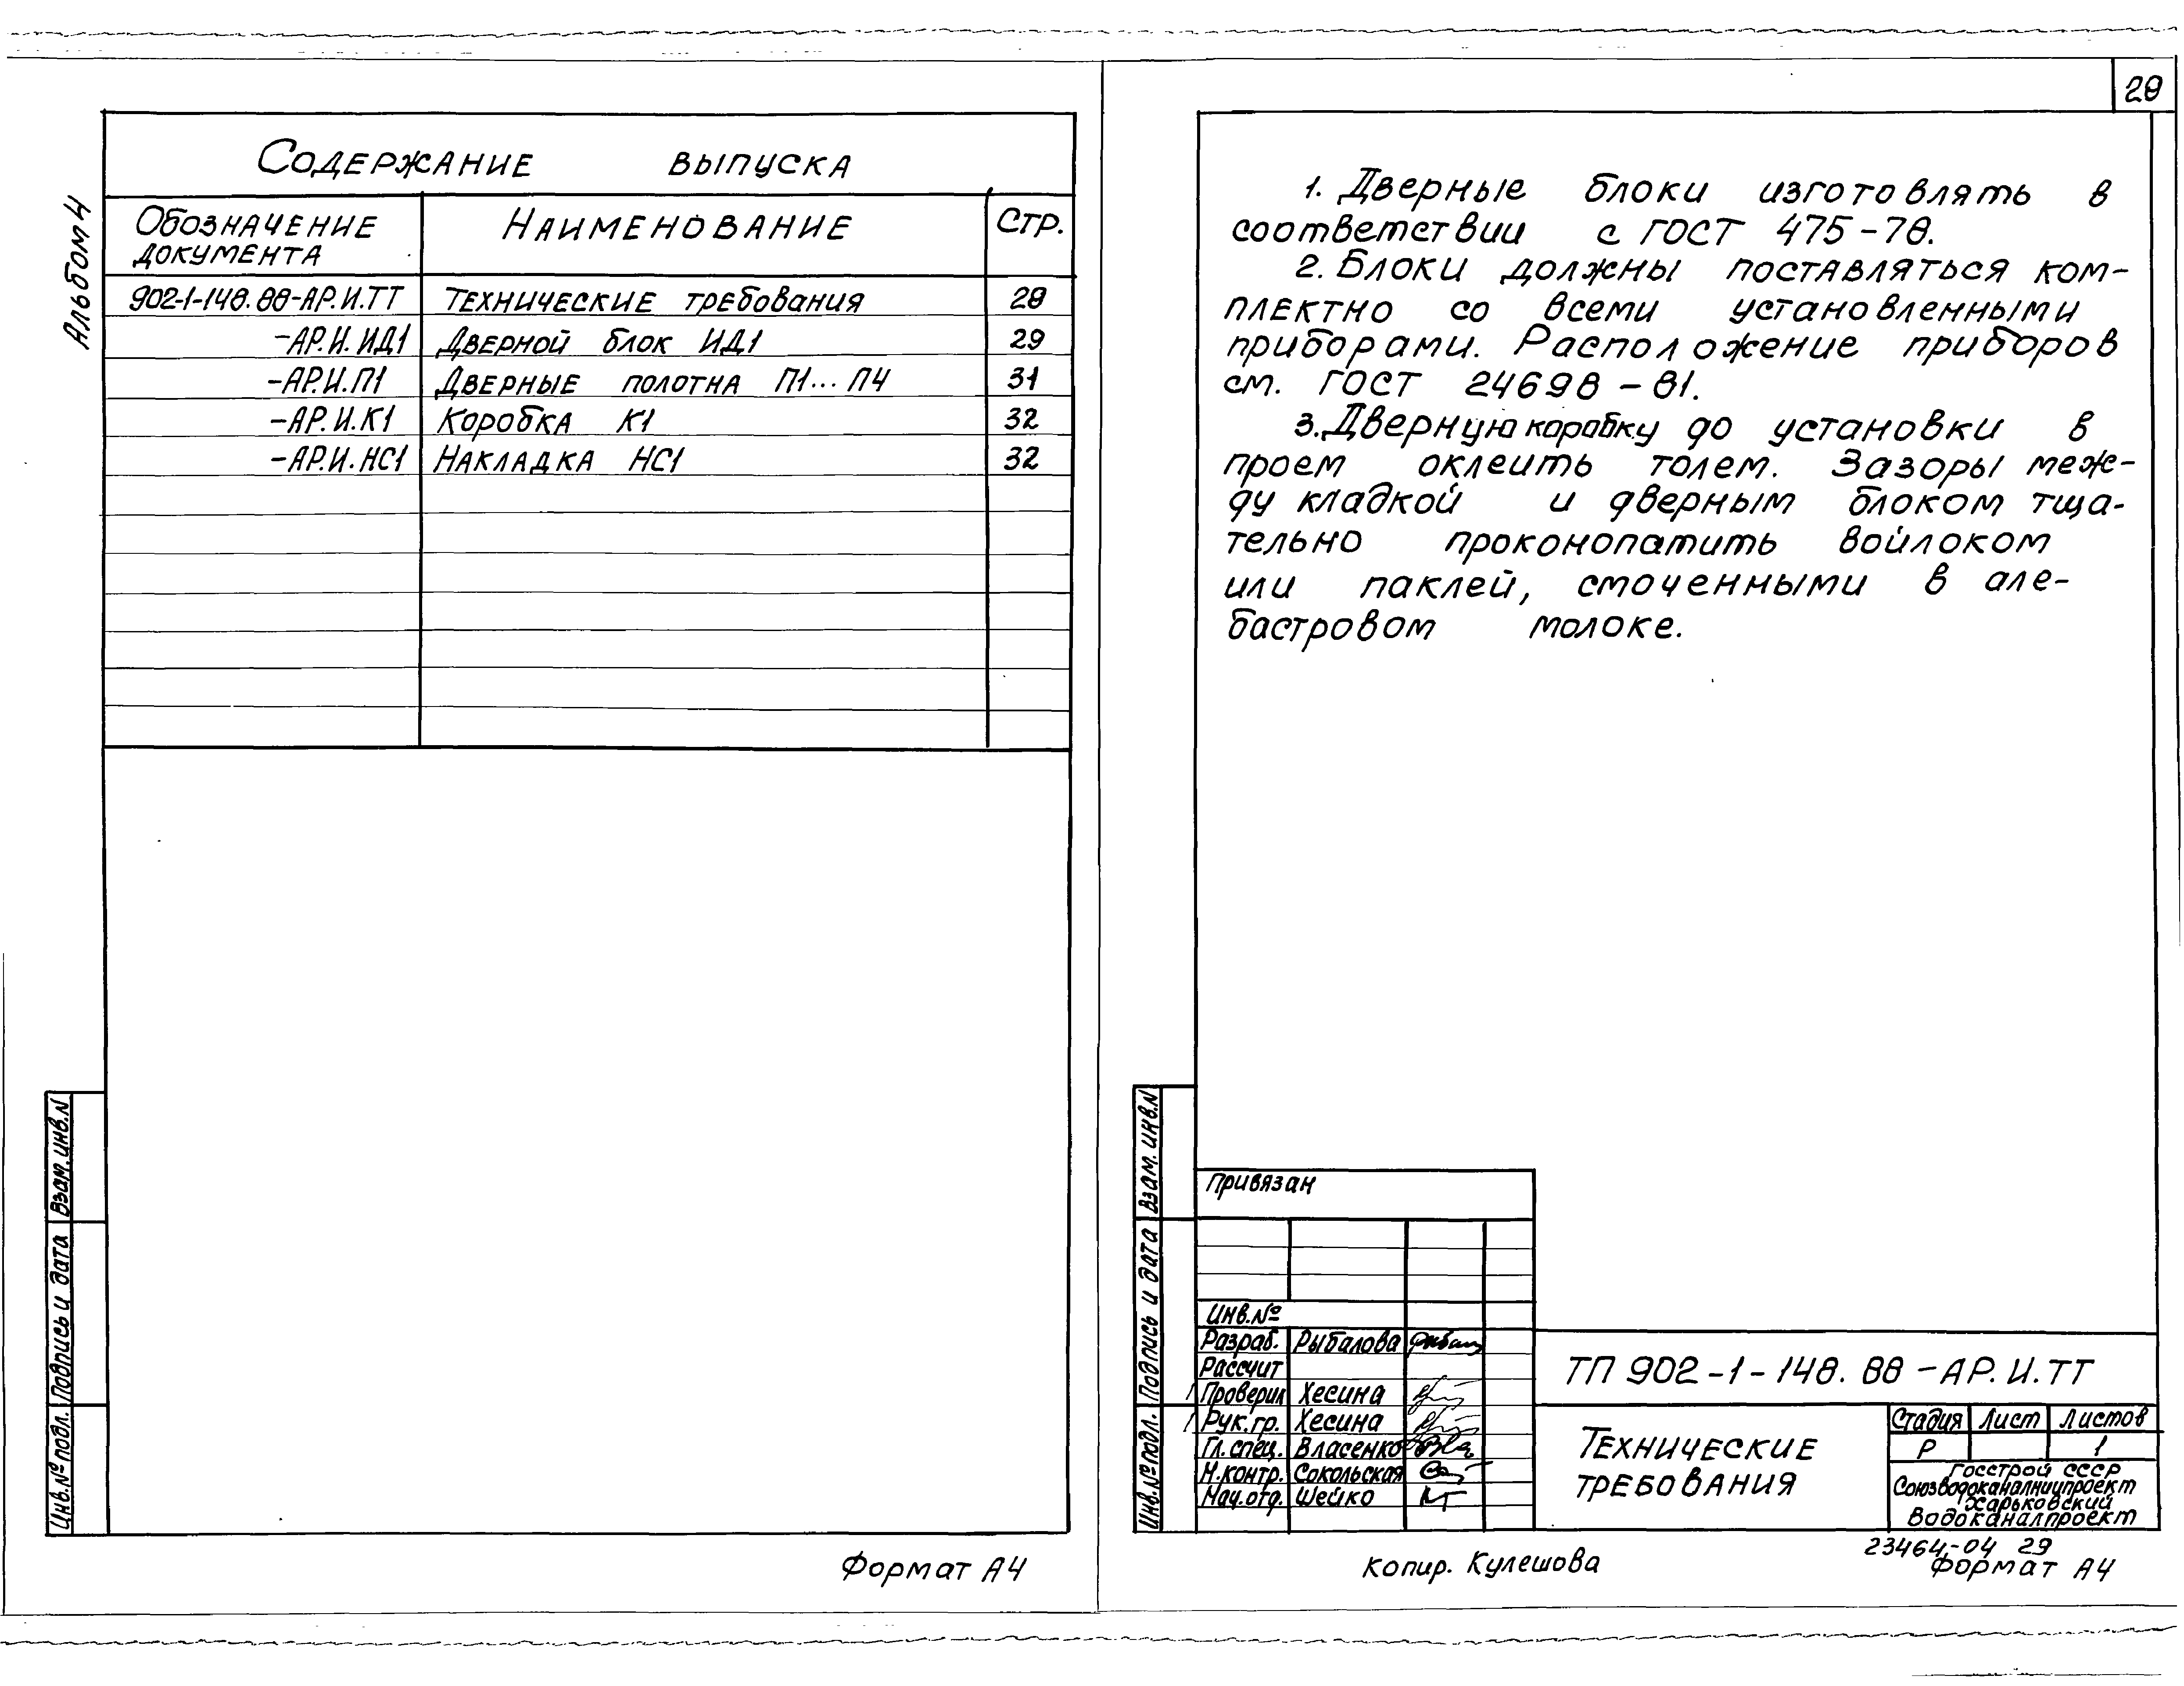 Альбом 4
Содержание выпуска
Обозначение документа Наименование Стр.
902-1-148.88-АР.И.ТТ Технические требования 28
-АР.И.ИД1 Дверной блок ИД1 29
-АР.И.П1 Дверные полотна П1...П4 31
-АР.И.К1 Коробка К1 32
-АР.И.НС1 Накладка НС1 32
Взам.инв.N
Подпись и дата
Инв.№ подл.
Формат А4
28
1. Дверные блоки изготовлять в
соответствии с ГОСТ 475-78.
2. Блоки должны поставляться ком-
плектно со всеми установленными
приборами. Расположение приборов
см. ГОСТ 24698-81.
3. Дверную коробку до установки в
проем оклеить толем. Зазоры меж-
ду кладкой и дверным блоком тща-
тельно проконопатить войлоком
или паклей, смоченными в але-
бастровом молоке.
Взам. инв.N
Подпись и дата
Инв.№ подл.
Привязан
Инв.№
Разраб. Рыбалова
Рассчит
Проверил Хесина
Рук.гр. Хесина
Гл.спец. Власенко
Н.контр. Сокольская
Нач.отд. Шейко
ТП 902-1-148.88-АР.И.ТТ
Технические
требования
Стадия Лист Листов
Р 1
Госстрой СССР
Союзводоканалниипроект
Харьковский
Водоканалпроект
23464-04 29
Копир. Кулешова
Формат А4